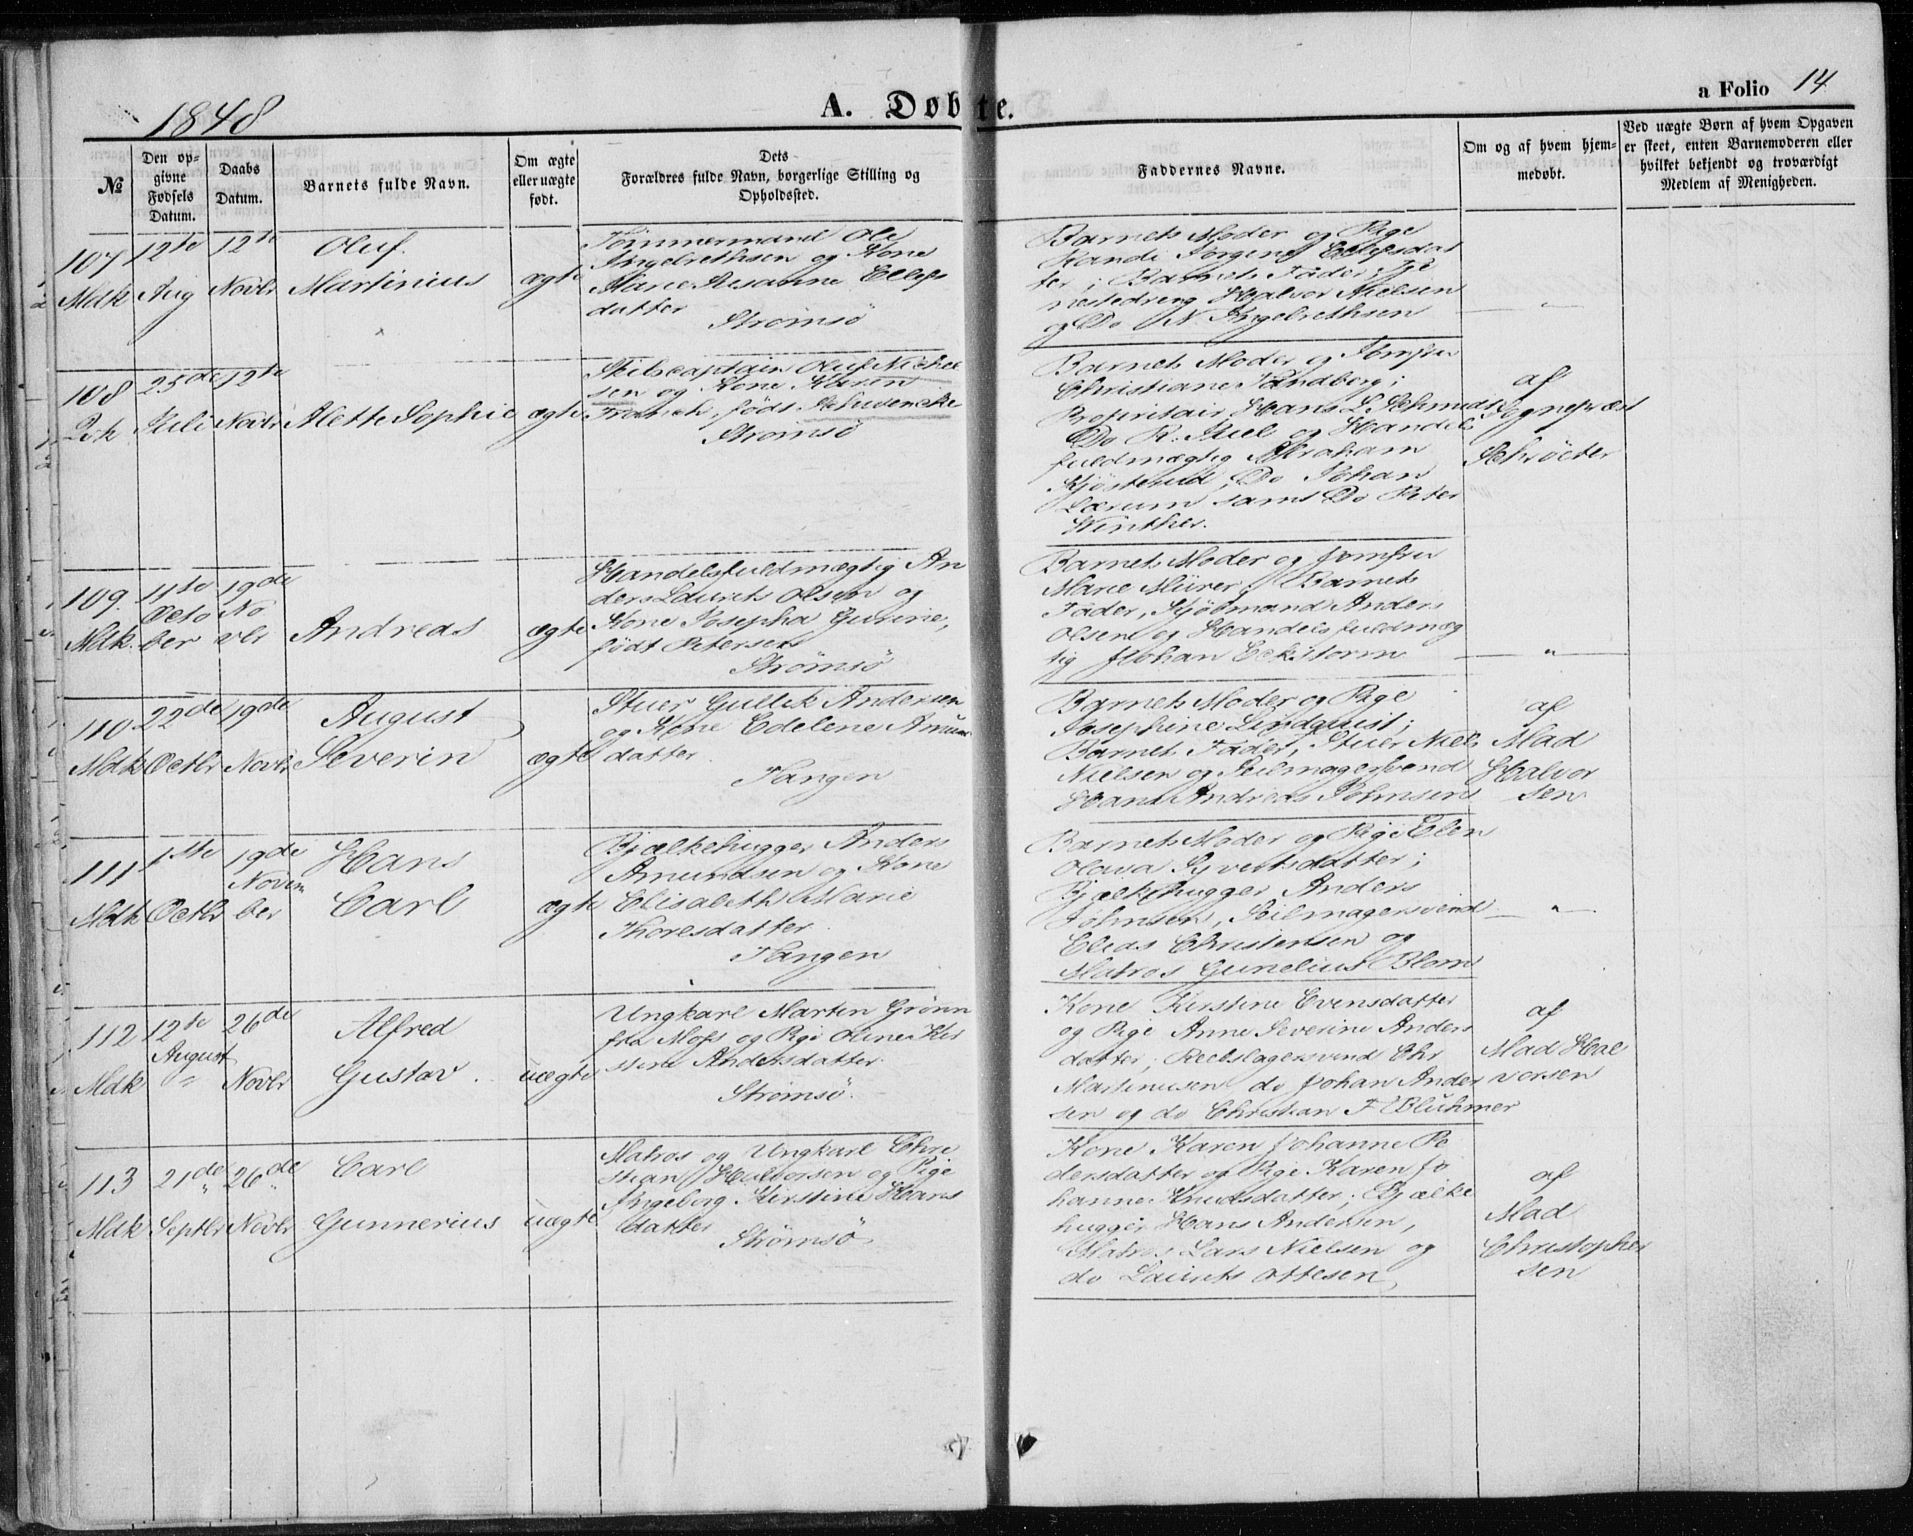 1848
A. Døbte.
a Folio 14
№
Den opgivne Fødsels Datum.
Daabs Datum.
Barnets fulde Navn.
Om ægte eller uægte født.
Dets Forældres fulde Navn, borgerlige Stilling og Opholdssted.
Faddernes Navne.
Om og af hvem hjemmedøbt.
Ved uægte Børn af hvem Opgaven er skeet, enten Barnemoderen eller hvilket bekjendt og troværdigt Medlem af Menigheden.
107
Mdk
12te
Aug
12te
Novbr
Oluf
Martinius
ægte
Tømmermand Ole
Ingebrethsen og Kone
Marie Susanne Ellefs
datter
Strømsö
Barnets Moder og Pige
Kandi Jorgine Ellefsdat
ter; Barnets Fader,
Halvor Nielsen
og Do N. Ingebrethsen
108
25de
12te
Novbr
Alette Sophie
ægte
Skibscaptain Oluf Nickel
sen og Kone Karen
født
Strømsö
Barnets Moder og Jomfru
Christiane Tandberg;
Proprietair Hans L. Schmidt
Do R. Juel og Handels
fuldmægtig Abraham
Kjøsterud, Do Johan
Lærum samt Do Peter
Winther.
af
Sognepræst
Schröeter
109.
Mdk.
11te
Octo
ber
19de
No
vbr
Andreas
ægte
Handelsfuldmægtig An
ders Laurits Olsen og
Kone Josepha Gurine,
født Petersen
Strømsö
Barnets Moder og Jomfru
Marie Mürer; Barnets
Fader, Kjöbmand Anders
Olsen og Handelsfuldmæg
tig Johan Eckstorm
"
110
Mdk
22de
Octbr
19de
Novbr
August
Severin
ægte
Stuer Gullik Andersen
og Kone Edelene Amun
datter
Tangen
Barnets Moder og Pige
Josephine Lindquist;
Barnets Fader, Stuer Niels
Nielsen og Seilmagersvend
Hans Andreas Johnsen
af
Mad
Halvor
sen
111
Mdk
1ste
Octbr
19de
Novem
ber
Hans
Carl
ægte
Bjælkehugger Anders
Amundsen og Kone
Elisabeth Marie
Thoresdatter
Tangen
Barnets Moder og Pige Elen
Olava Syvertsdatter;
Bjælkehugger Anders
Johnsen, Seilmagersvend
Elias Christensen og
Matros Gunelius Blom
"
112
Mdk
12te
August
"
26de
Novbr
Alfred
Gustav
uægte
Ungkarl Martin Grönn
fra Moss og Pige Oline Kir
stine Andersdatter
Strømsö.
Kone Kirstine Evensdatter
og Pige Anne Severine Anders
datter, Reebslagersvend Chr
Martinusen do Johan Ander
sen og do Christian F Blühmer
af
Mad Hal
vorsen
113
Mdk
21de
Septbr
26de
Novbr
Carl
Gunnerius
uægte
Matros og Ungkarl Chri
stian Halvorsen og Pige
Ingeborg Kirstine Hans
datter
Strømsö
Kone Karen Johanne Pe
dersdatter og Pige Karen Jo
hanne Knudsdatter; Bjælke
hugger Hans Andersen,
Matros Lars Nielsen og
do Laurits Ottesen,
af
Mad
Christopher
sen